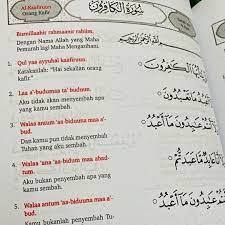 Al-Kaafiruun
Orang Kafir
سُورَةُ الْكَافِرُونَ
Bismillaahir rahmaanir rahiim.
Dengan Nama Allah yang Maha
Pemurah lagi Maha Mengasihani.
1. Qul yaa ayyuhal kaafiruun.
Katakanlah: "Hai sekalian orang
kafir."
2. Laa a'-budumaa ta' buduun.
Aku tidak akan menyembah apa
yang kamu sembah.
3. Walaa antum 'aa-biduuna maa a'-
bud.
Dan kamu pun tidak menyembah
Tuhan yang aku sembah.
4. Walaa 'ana 'aa-bidum maa abad-
tum.
Aku bukan penyembah apa yang
kamu sembah.
5. Walaa antum 'aa-biduuna maa a'-
bud.
Kamu bukanlah penyembah Tu-
بِسْمِ اللَّهِ الرَّحْمَٰنِ الرَّحِيمِ
الْكَافِرُونَ
مَا تَعْبُدُونَ
عَابِدُونَ مَا أَعْبُدُ
عَابِدٌ مَا عَبَدْتُمْ
عَابِدُونَ مَا أَعْبُدُ